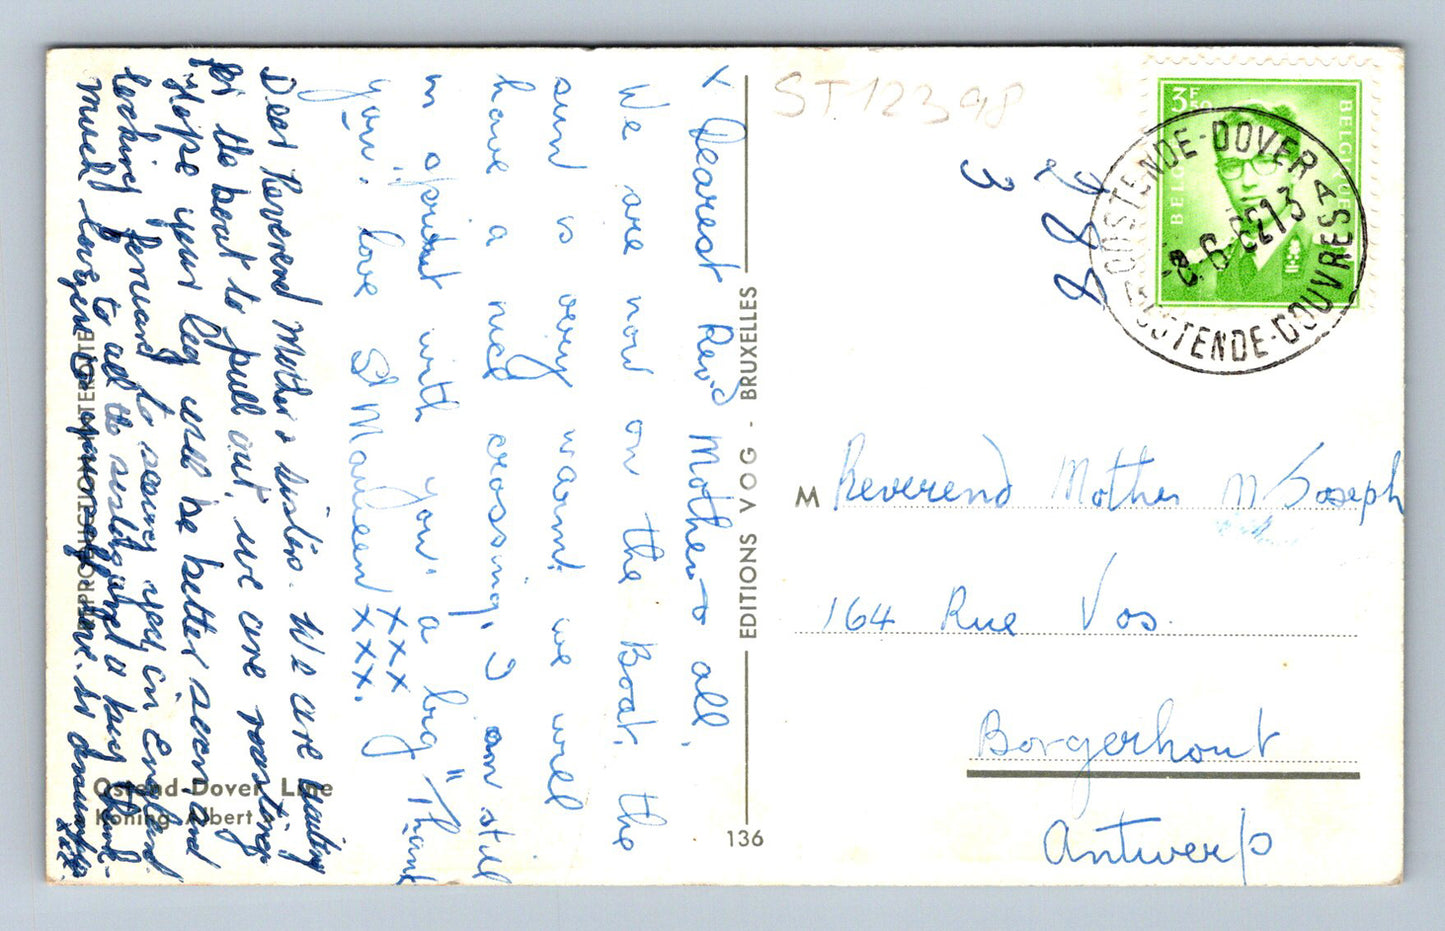 x Dearest Rev'd Mother & all,
We are now on the Boat, the
sun is very warm we will
have a nice crossing, I am still
in spirit with you "a big" Thank
you. love Sr Maureen xxx
xxx.
Dear Reverend Mother & Sisters. We are waiting
for the boat to pull out, we are roasting
Hope your leg will be better soon and
looking forward to seeing you in England
much love to all the sisters and a big thank-
xxx
REPRODUCTION INTERDITE
Ostend-Dover Line
Koning Albert
EDITIONS VOG - BRUXELLES
136
ST12398
288
3
3F50
BELGIQUE
BELGIË
OOSTENDE-DOVER
OSTENDE-DOUVRES
8.-6.6213
A
M Reverend Mother M Joseph
164 Rue Vos.
Borgerhout
Antwerp